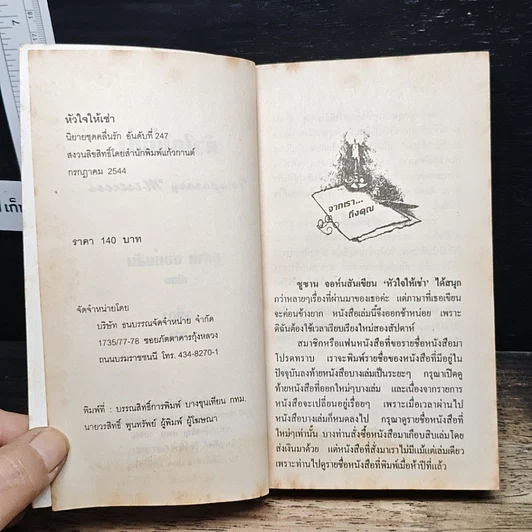 หัวใจให้เช่า
นิยายชุดคลื่นรัก อันดับที่ 247
สงวนลิขสิทธิ์โดยสำนักพิมพ์แก้วกานต์
กรกฎาคม 2544
ราคา 140 บาท
จัดจำหน่ายโดย
บริษัท ธนบรรณจัดจำหน่าย จำกัด
1735/77-78 ซอยภัตตาคารกุ้งหลวง
ถนนบรมราชชนนี โทร. 434-8270-1
พิมพ์ที่ : บรรณสิทธิ์การพิมพ์ บางขุนเทียน กทม.
นายวรสิทธิ์ พูนทรัพย์ ผู้พิมพ์ ผู้โฆษณา
จากเรา...
ถึงคุณ
ซูซาน จอห์นสันเขียน 'หัวใจให้เช่า' ได้สนุก
กว่าหลายๆเรื่องที่ผ่านมาของเธอค่ะ แต่ภาษาที่เธอเขียน
จะค่อนข้างยาก หนังสือเล่มนี้จึงออกช้าหน่อย เพราะ
ดิฉันต้องใช้เวลาเรียบเรียงใหม่สองสัปดาห์
สมาชิกหรือแฟนหนังสือที่ขอรายชื่อหนังสือมา
โปรดทราบ เราจะพิมพ์รายชื่อของหนังสือที่มีอยู่ใน
ปัจจุบันลงท้ายหนังสือบางเล่มเป็นระยะๆ กรุณาเปิดดู
ท้ายหนังสือที่ออกใหม่ๆบางเล่ม และเนื่องจากรายการ
หนังสือจะเปลี่ยนอยู่เรื่อยๆ เพราะเมื่อเวลาผ่านไป
หนังสือบางเล่มก็หมดลงไป กรุณาดูรายชื่อหนังสือที่
ใหม่ๆเท่านั้น บางท่านสั่งซื้อหนังสือมาเกือบสิบเล่มโดย
ส่งเงินมาด้วย แต่หนังสือที่สั่งมาเราไม่มีแม้แต่เล่มเดียว
เพราะท่านไปดูรายชื่อหนังสือที่พิมพ์เมื่อห้าปีที่แล้ว